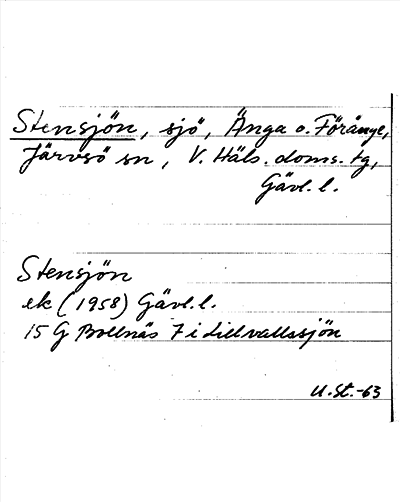 Stensjön, sjö, Änga o. Föränge,
Järvsö sn, V. Häls. doms. tg,
Gävl. l.
Stensjön
ek (1958) Gävl. l.
15 G Bollnäs 7 i Lillvallssjön
U.St.-63